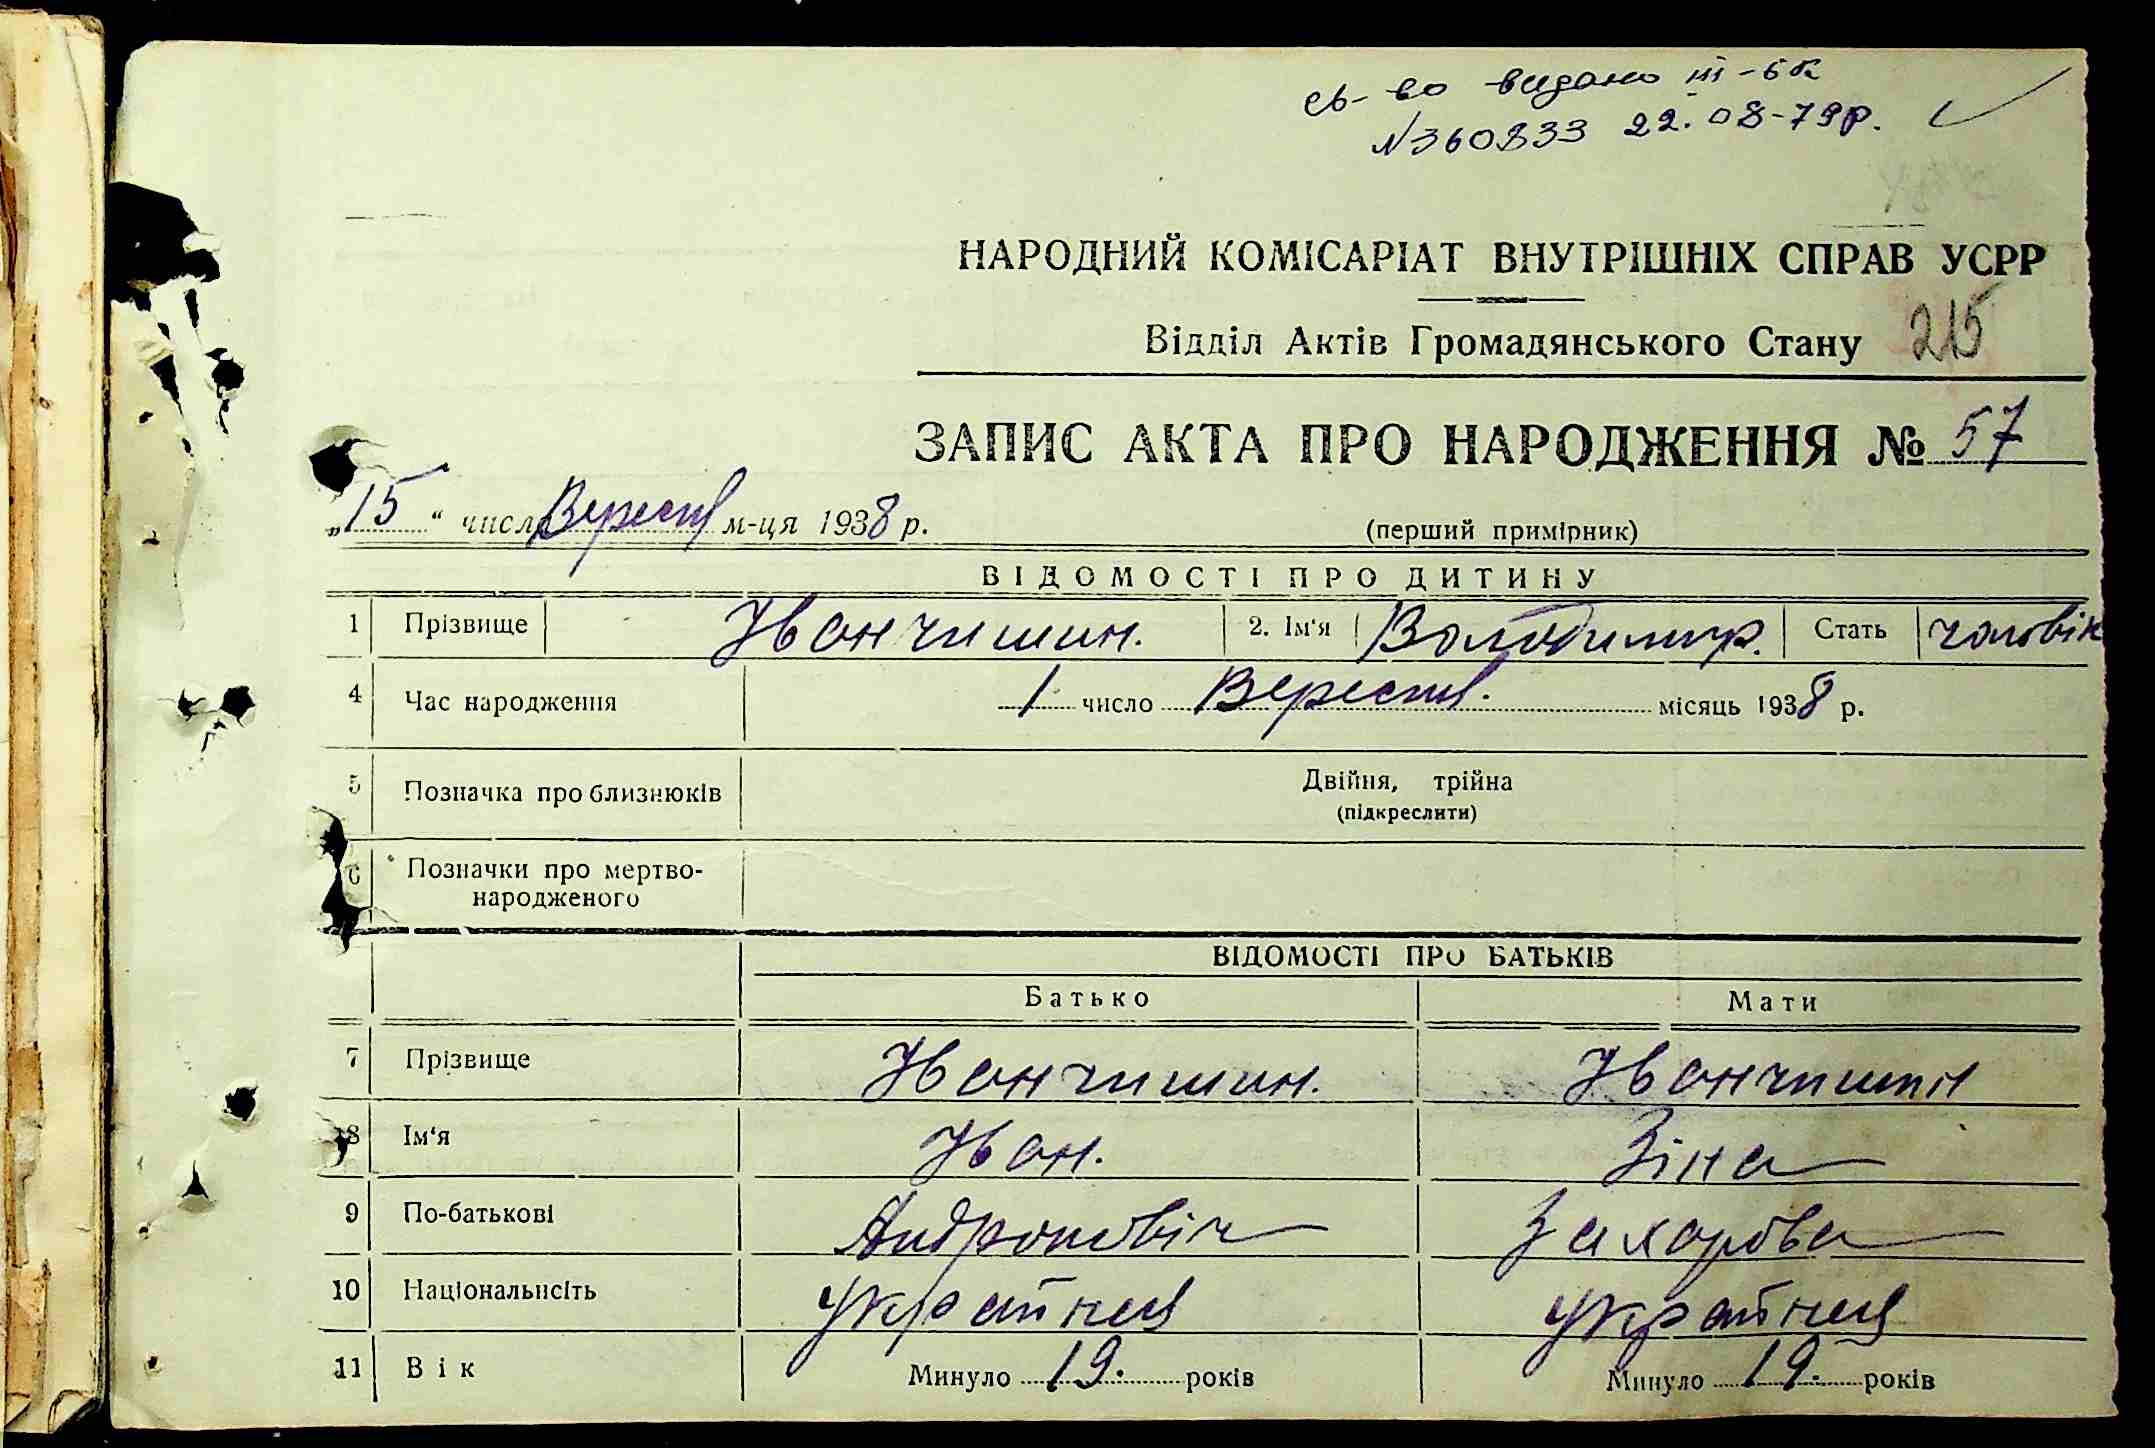 св-во видано III-БК
№360833 22.08-79р.
НАРОДНИЙ КОМІСАРІАТ ВНУТРІШНІХ СПРАВ УСРР
Відділ Актів Громадянського Стану 215
ЗАПИС АКТА ПРО НАРОДЖЕННЯ № 57
„15“ число Вересня м-ця 1938 р. (перший примірник)
ВІДОМОСТІ ПРО ДИТИНУ
1 Прізвище Иванчишин. 2. Ім'я Володимир. Стать чоловік
4 Час народження 1 число Вересня. місяць 1938 р.
5 Позначка про близнюків Двійня, трійна
(підкреслити)
6 Позначки про мертво-
народженого
ВІДОМОСТІ ПРО БАТЬКІВ
Батько Мати
7 Прізвище Иванчишин. Иванчишин
8 Ім'я Иван. Зіна
9 По-батькові Андронович Захарова
10 Національність українец українец
11 Вік Минуло 19. років Минуло 19. років